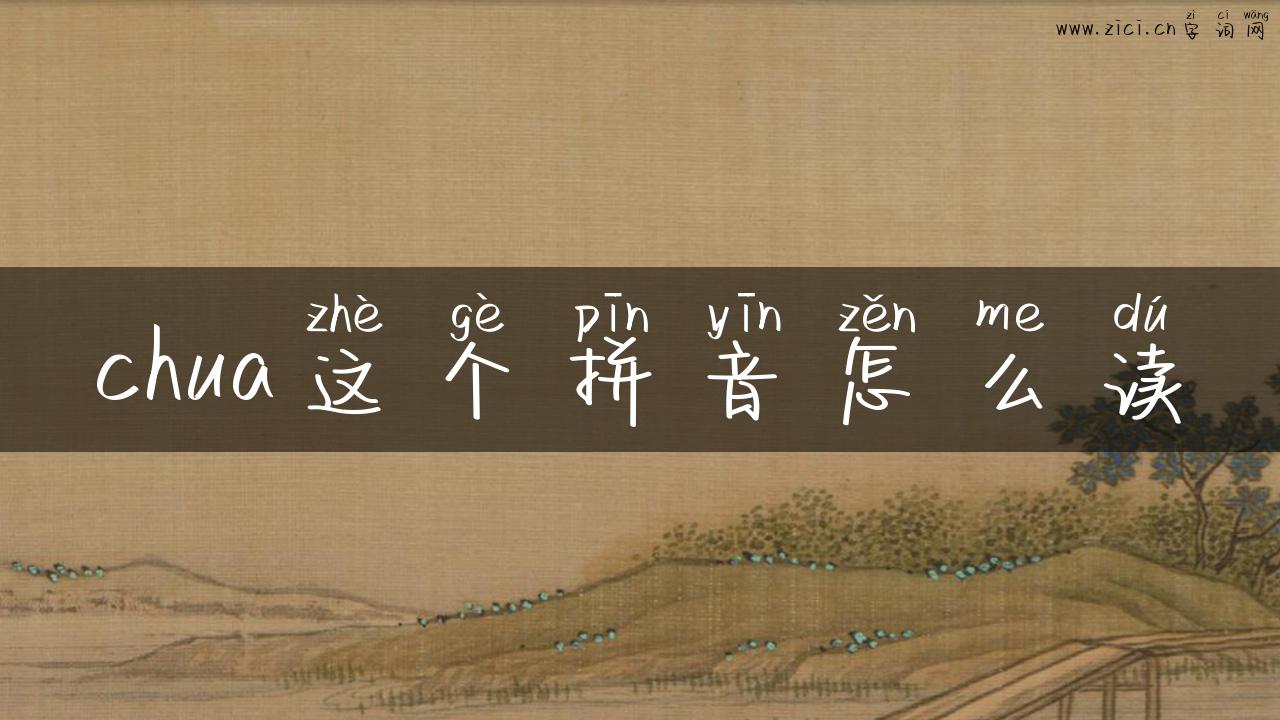 zì cí wǎng
www.zici.cn 字词网
zhè gè pīn yīn zěn me dú
chua 这个拼音怎么读